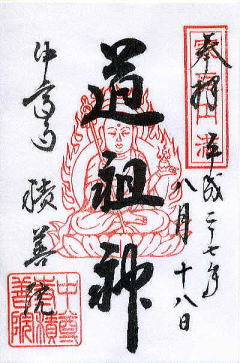 奉拝
平成二十七年
八月十八日
道祖神
中尊寺
積善院
中尊
寺積
善院